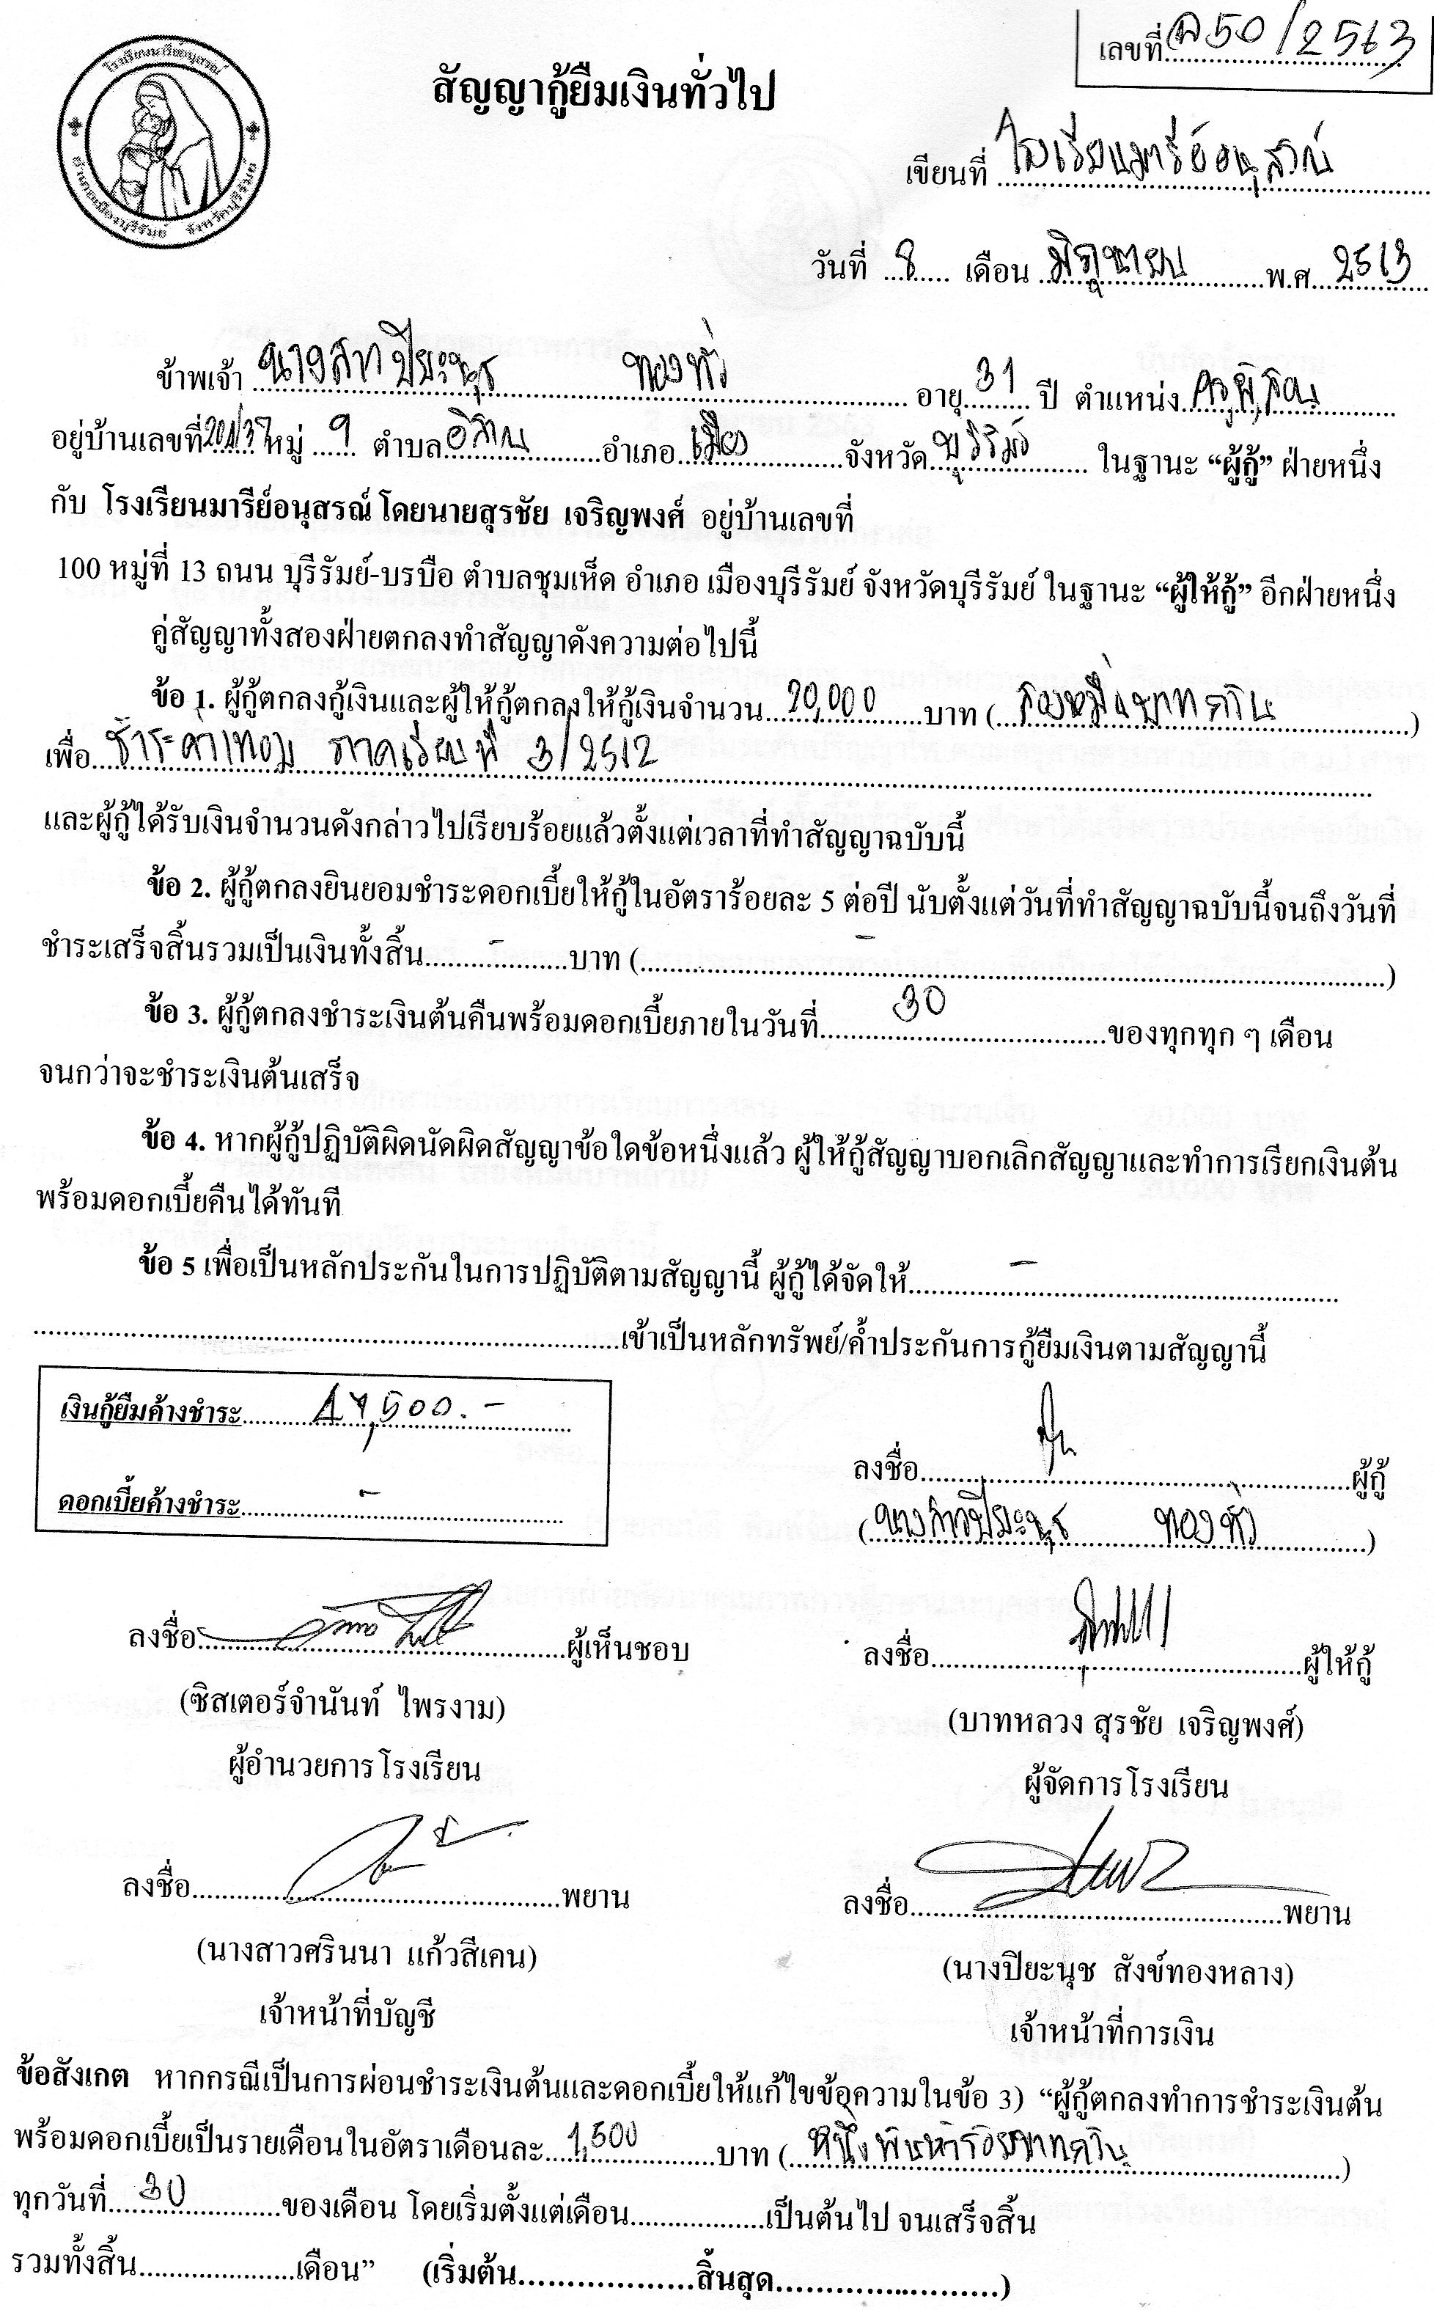 โรงเรียนมารีย์อนุสรณ์
อำเภอเมืองบุรีรัมย์ จังหวัดบุรีรัมย์
เลขที่ 050/2563
สัญญากู้ยืมเงินทั่วไป
เขียนที่ โรงเรียนมารีย์อนุสรณ์
วันที่ 8 เดือน มิถุนายน พ.ศ. 2563
ข้าพเจ้า นางสาวปิยะนุช ทองทั่ว อายุ 31 ปี ตำแหน่ง ครูผู้สอน
อยู่บ้านเลขที่ 201/37 หมู่ 9 ตำบล อิสาณ อำเภอ เมือง จังหวัด บุรีรัมย์ ในฐานะ “ผู้กู้” ฝ่ายหนึ่ง
กับ โรงเรียนมารีย์อนุสรณ์ โดยนายสุรชัย เจริญพงศ์ อยู่บ้านเลขที่
100 หมู่ที่ 13 ถนน บุรีรัมย์-บรบือ ตำบลชุมเห็ด อำเภอ เมืองบุรีรัมย์ จังหวัดบุรีรัมย์ ในฐานะ “ผู้ให้กู้” อีกฝ่ายหนึ่ง
คู่สัญญาทั้งสองฝ่ายตกลงทำสัญญาดังความต่อไปนี้
ข้อ 1. ผู้กู้ตกลงกู้เงินและผู้ให้กู้ตกลงให้กู้เงินจำนวน 20,000 บาท (สองหมื่นบาทถ้วน)
เพื่อ ชำระค่าเทอม ภาคเรียนที่ 3/2562
และผู้กู้ได้รับเงินจำนวนดังกล่าวไปเรียบร้อยแล้วตั้งแต่เวลาที่ทำสัญญาฉบับนี้
ข้อ 2. ผู้กู้ตกลงยินยอมชำระดอกเบี้ยให้กู้ในอัตราร้อยละ 5 ต่อปี นับตั้งแต่วันที่ทำสัญญาฉบับนี้จนถึงวันที่
ชำระเสร็จสิ้นรวมเป็นเงินทั้งสิ้น - บาท ( - )
ข้อ 3. ผู้กู้ตกลงชำระเงินต้นคืนพร้อมดอกเบี้ยภายในวันที่ 30 ของทุกทุก ๆ เดือน
จนกว่าจะชำระเงินต้นเสร็จ
ข้อ 4. หากผู้กู้ปฏิบัติผิดนัดผิดสัญญาข้อใดข้อหนึ่งแล้ว ผู้ให้กู้สัญญาบอกเลิกสัญญาและทำการเรียกเงินต้น
พร้อมดอกเบี้ยคืนได้ทันที
ข้อ 5 เพื่อเป็นหลักประกันในการปฏิบัติตามสัญญานี้ ผู้กู้ได้จัดให้ -
เข้าเป็นหลักทรัพย์/ค้ำประกันการกู้ยืมเงินตามสัญญานี้
เงินกู้ยืมค้างชำระ 17,500.-
ดอกเบี้ยค้างชำระ -
ลงชื่อ ผู้กู้
(นางสาวปิยะนุช ทองทั่ว)
ลงชื่อ ผู้เห็นชอบ ลงชื่อ ผู้ให้กู้
(ซิสเตอร์จำนันท์ ไพรงาม) (บาทหลวง สุรชัย เจริญพงศ์)
ผู้อำนวยการโรงเรียน ผู้จัดการโรงเรียน
ลงชื่อ พยาน ลงชื่อ พยาน
(นางสาวศรินนา แก้วสีเคน) (นางปิยะนุช สังข์ทองหลาง)
เจ้าหน้าที่บัญชี เจ้าหน้าที่การเงิน
ข้อสังเกต หากกรณีเป็นการผ่อนชำระเงินต้นและดอกเบี้ยให้แก้ไขข้อความในข้อ 3) “ผู้กู้ตกลงทำการชำระเงินต้น
พร้อมดอกเบี้ยเป็นรายเดือนในอัตราเดือนละ 1,500 บาท (หนึ่งพันห้าร้อยบาทถ้วน)
ทุกวันที่ 30 ของเดือน โดยเริ่มตั้งแต่เดือน เป็นต้นไป จนเสร็จสิ้น
รวมทั้งสิ้น เดือน” (เริ่มต้น สิ้นสุด )